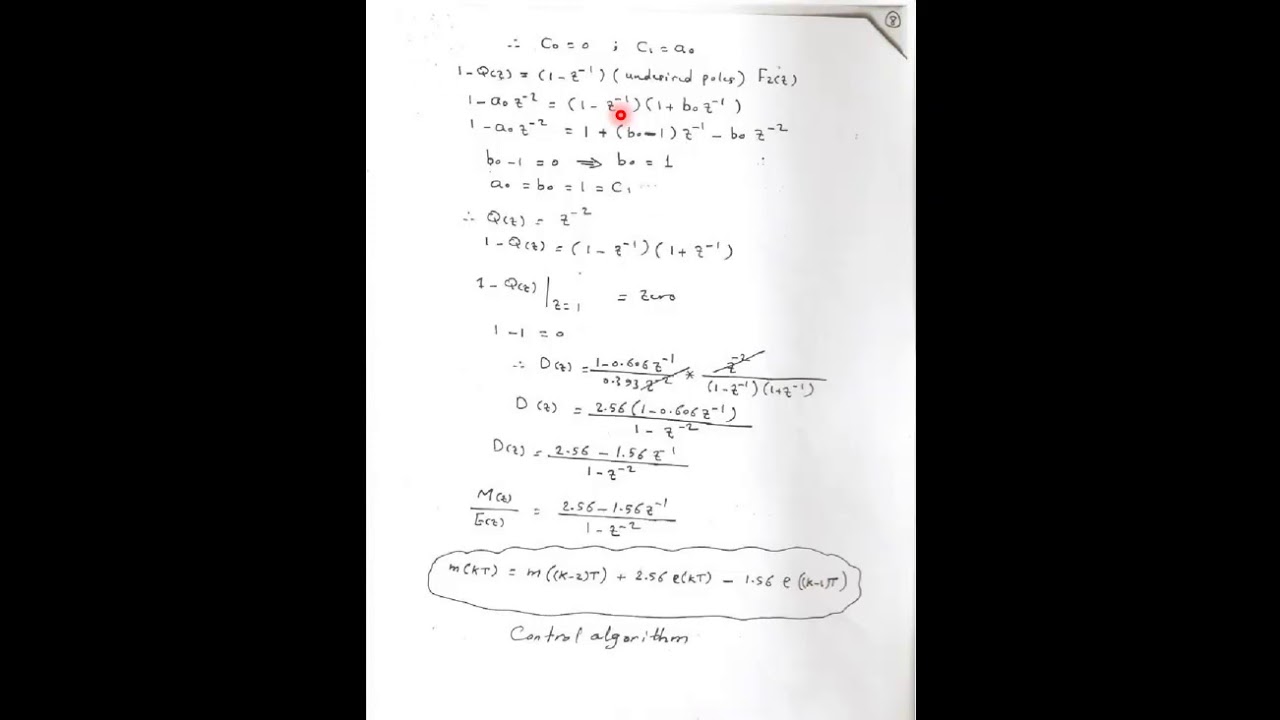 8
∴ C₀ = 0 ; C₁ = a₀
1 - Q(z) = (1 - z⁻¹) (undesired poles) F₂(z)
1 - a₀ z⁻² = (1 - z⁻¹)(1 + b₀ z⁻¹)
1 - a₀ z⁻² = 1 + (b₀ - 1) z⁻¹ - b₀ z⁻²
b₀ - 1 = 0 ⇒ b₀ = 1
a₀ = b₀ = 1 = C₁
∴ Q(z) = z⁻²
1 - Q(z) = (1 - z⁻¹)(1 + z⁻¹)
1 - Q(z) |z=1 = zero
1 - 1 = 0
∴ D(z) = (1 - 0.606 z⁻¹)/(0.393 z⁻²) * z⁻²/((1 - z⁻¹)(1 + z⁻¹))
D(z) = 2.56 (1 - 0.606 z⁻¹)/(1 - z⁻²)
D(z) = (2.56 - 1.56 z⁻¹)/(1 - z⁻²)
M(z)/E(z) = (2.56 - 1.56 z⁻¹)/(1 - z⁻²)
m(kT) = m((k-2)T) + 2.56 e(kT) - 1.56 e((k-1)T)
Control algorithm